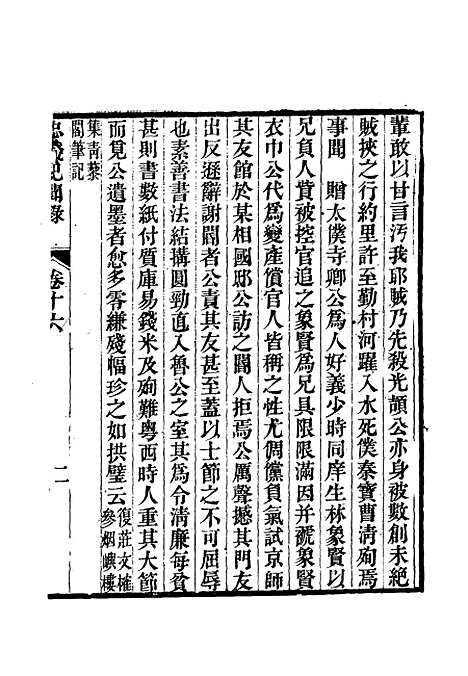 輩敢以甘言汚我耶賊乃先殺光頡公亦身被數創未絕
賊挾之行約里許至勤村河躍入水死僕秦寶曹清殉焉
事聞　贈太僕寺卿公為人好義少時同庠生林象賢以
兄負人賞被控官追之象賢為兄具限限滿因并褫象賢
衣巾公代為變產償官人皆稱之性尤倜儻負氣試京師
其友館於某相國邸公訪之閽人拒焉公厲聲撼其門友
出反遜辭謝閽者公責其友甚至蓋以士節之不可屈辱
也素善書法結搆圓勁直入魯公之室其為令清廉每貧
甚則書數紙付質庫易錢米及殉難粵西時人重其大節
而覓公遺墨者愈多零縑殘幅珍之如拱璧云復莊文榷參烟嶼樓
集青藜閣筆記
忠義紀聞錄　卷十六　二